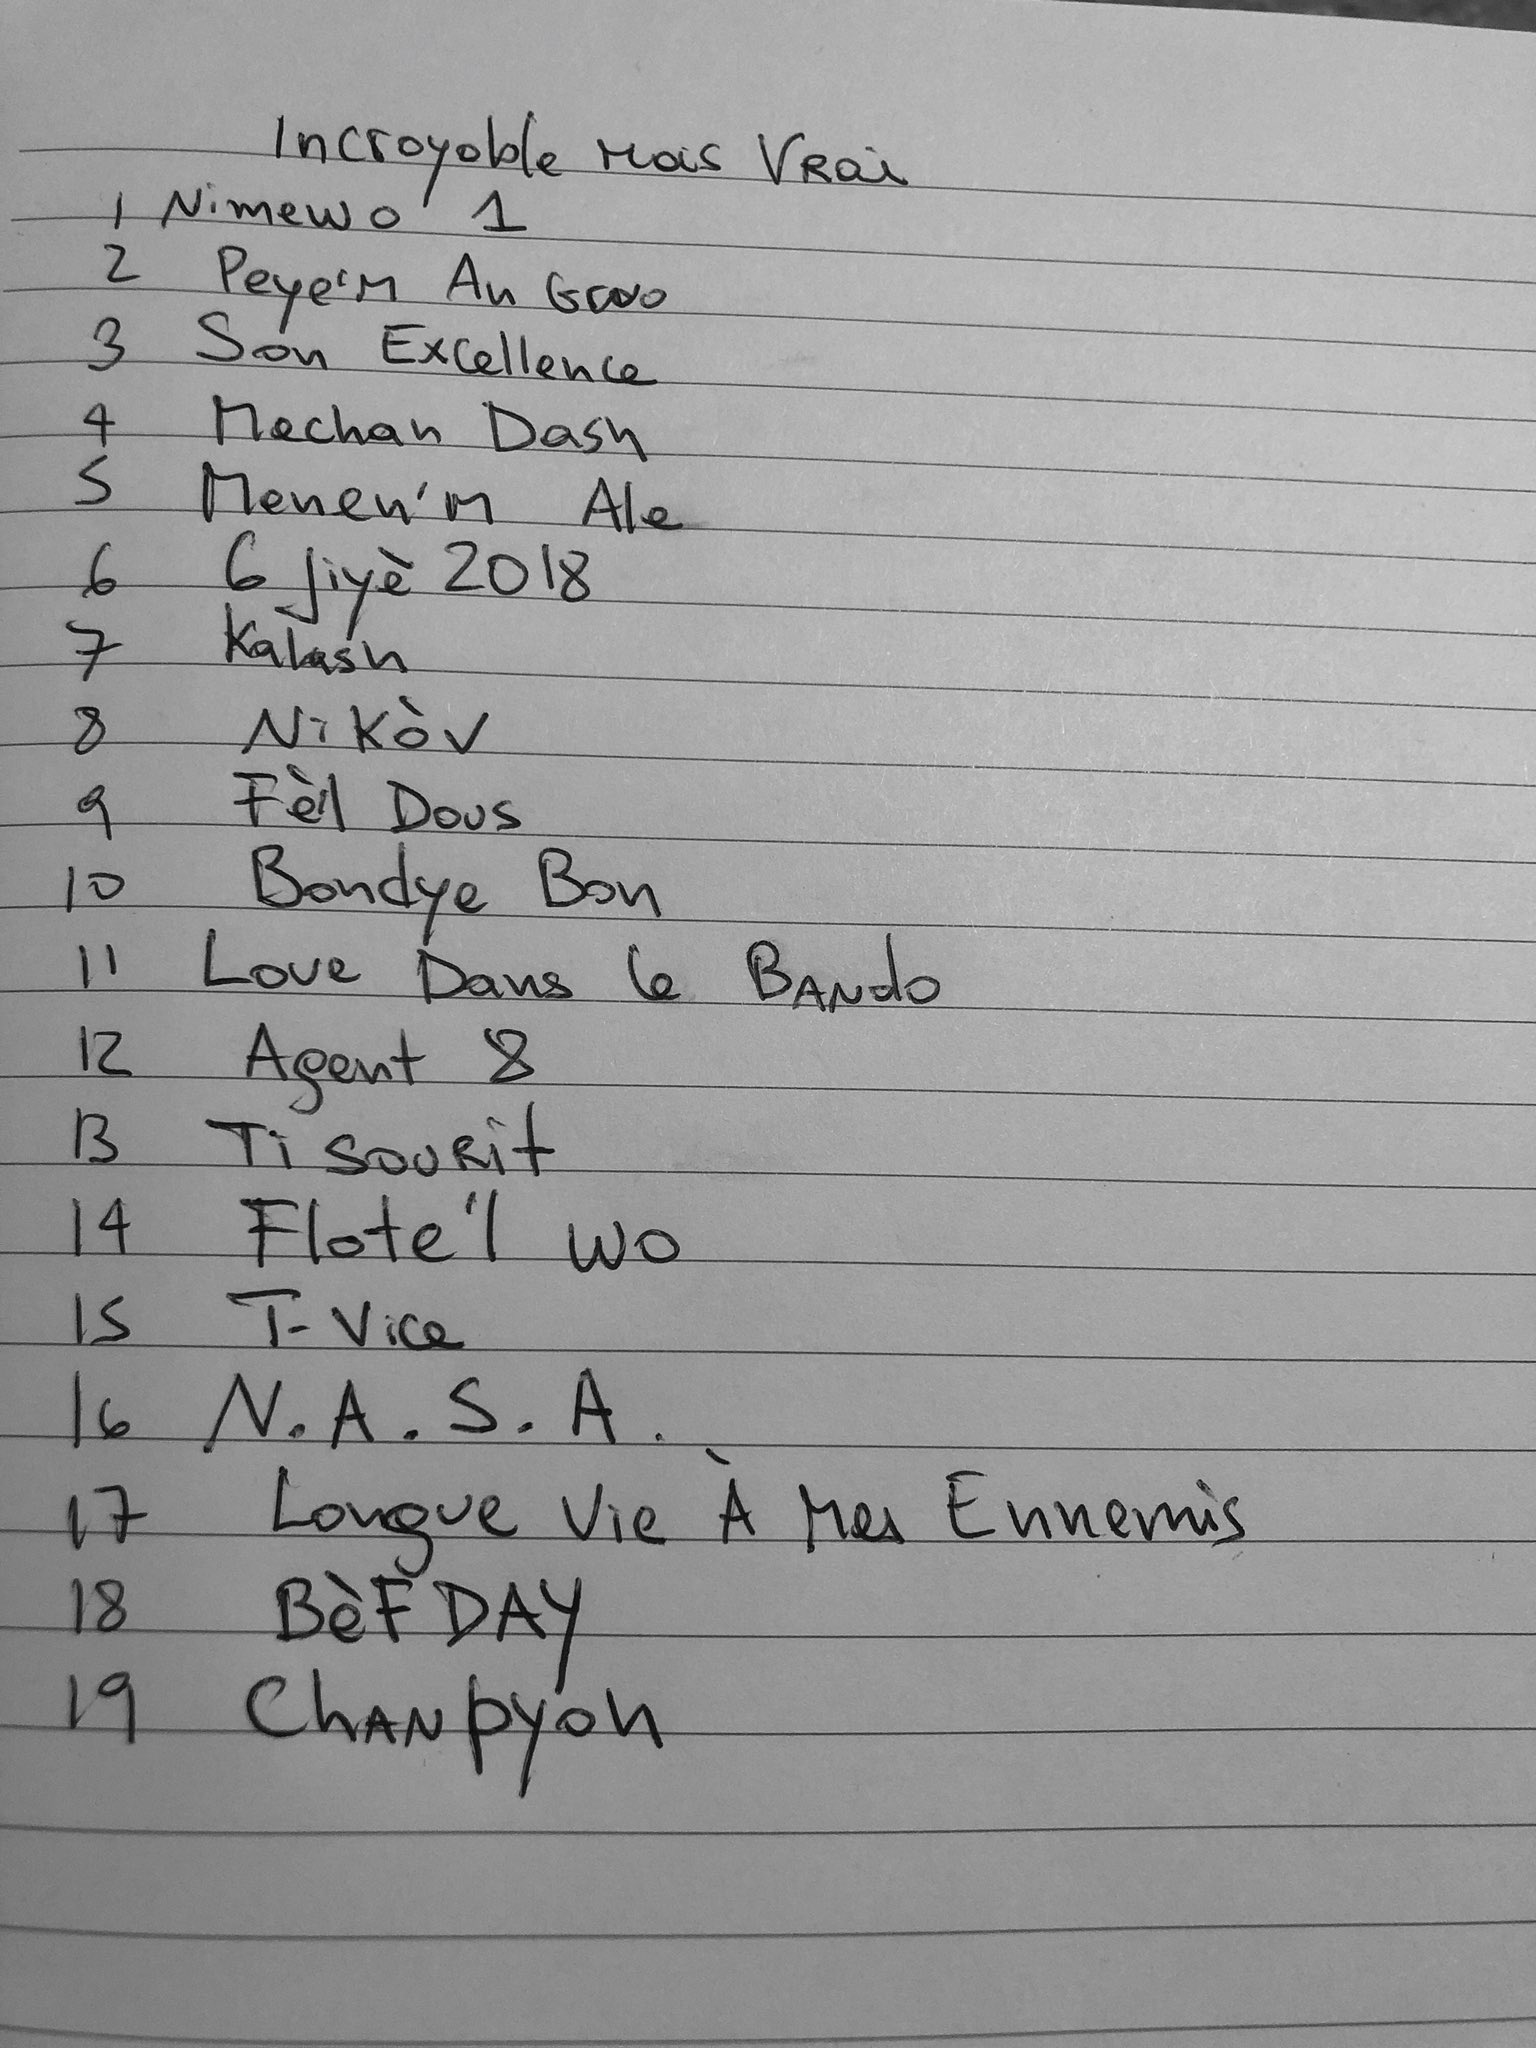 Incroyable Mais Vrai
1 Nimewo 1
2 Peye'm An Gwo
3 Son Excellence
4 Mechan Dash
5 Menen'm Ale
6 6 Jiyè 2018
7 Kalash
8 Nikòv
9 Fèl Dous
10 Bondye Bon
11 Love Dans le BANdo
12 Agent 8
13 Ti souRit
14 Flote'l wo
15 T-Vice
16 N.A.S.A.
17 Longue Vie À Mes Ennemis
18 BèF DAY
19 ChANpyon